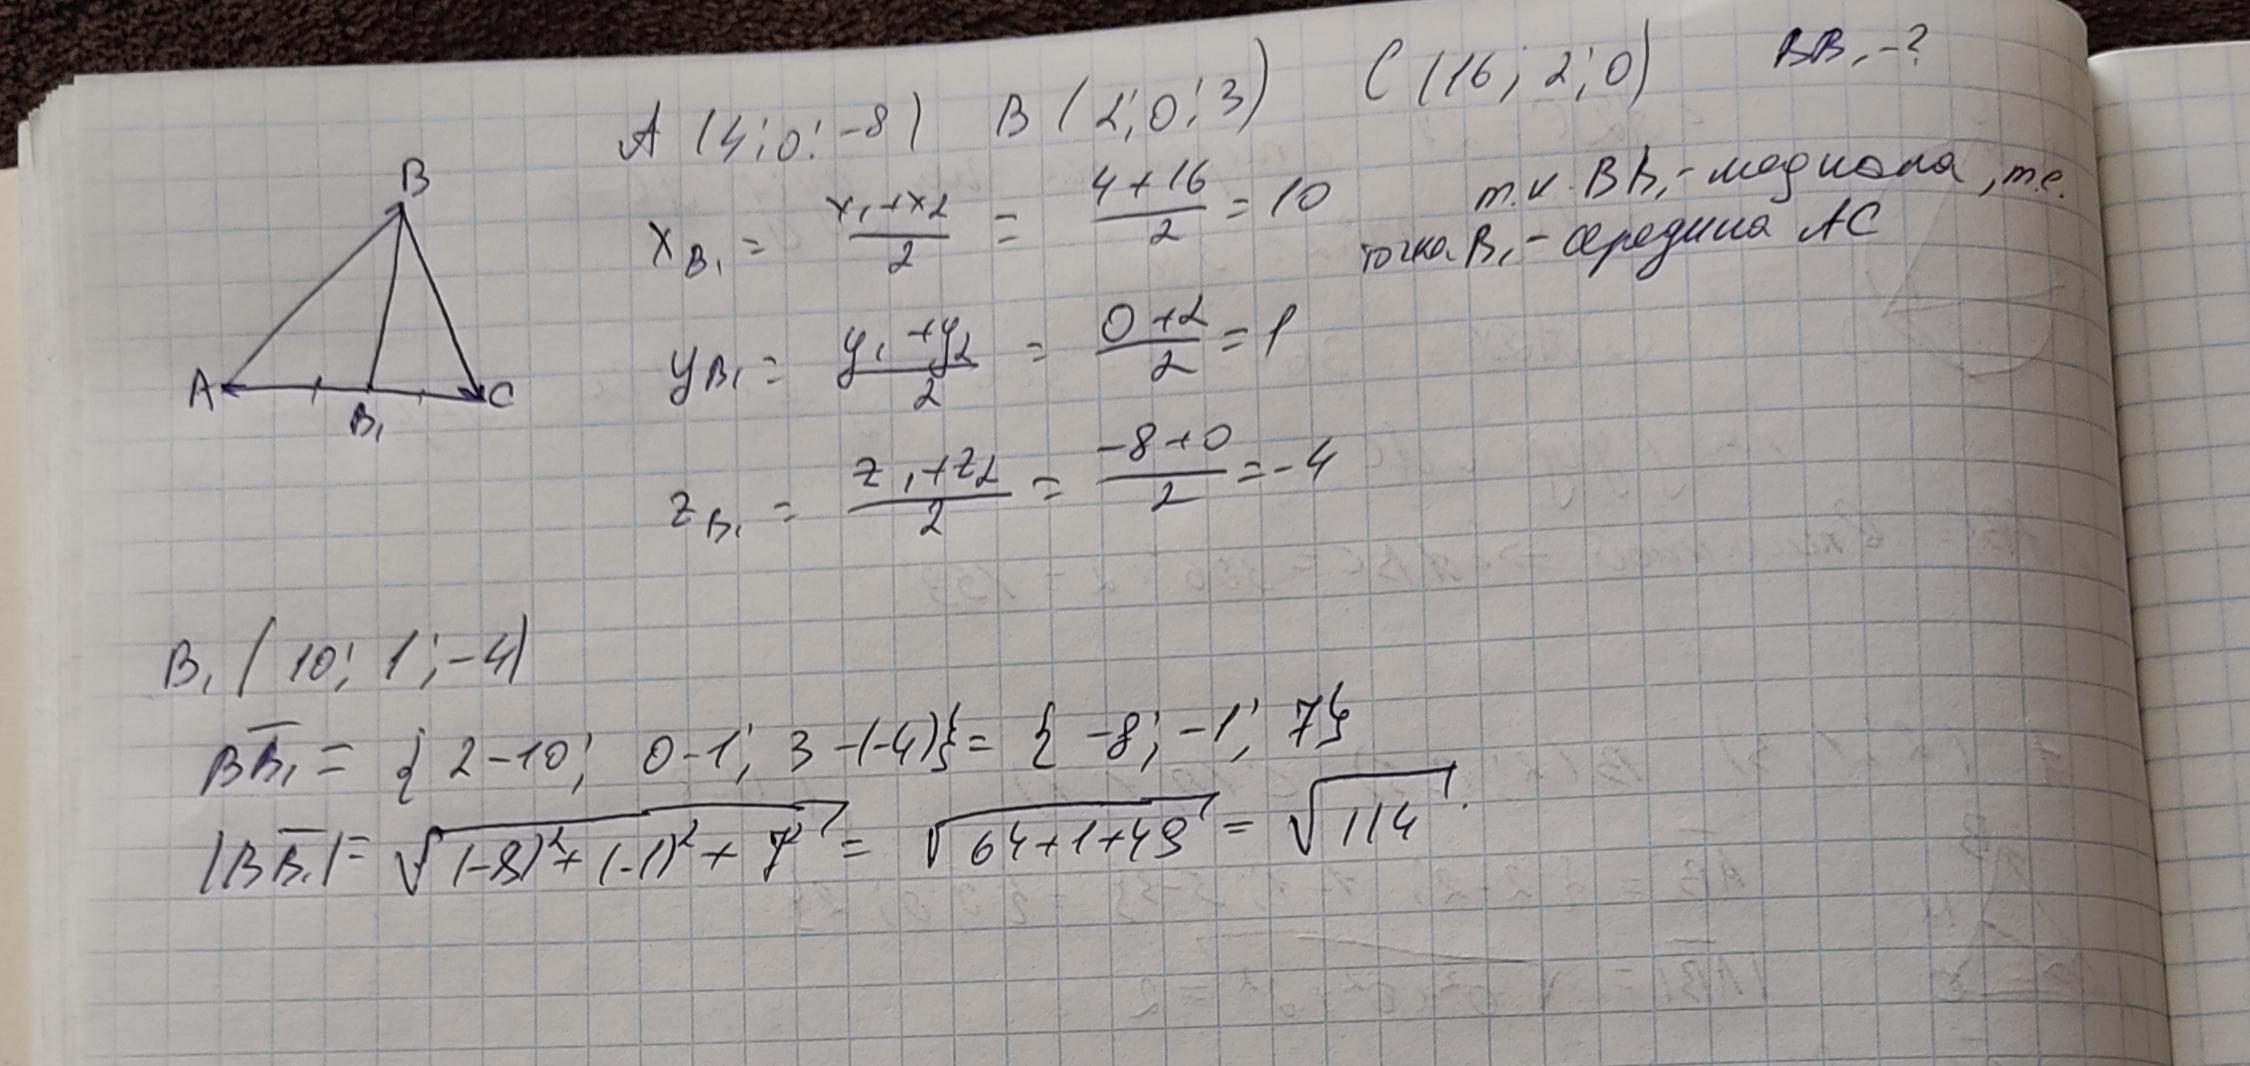 A (4; 0; -8) B (2; 0; 3) C (16; 2; 0) BB₁ - ?
B
A
B₁
C
x_B₁ = (x₁+x₂)/2 = (4+16)/2 = 10
т.к. BB₁ - медиана, т.е.
точка B₁ - середина AC
y_B₁ = (y₁+y₂)/2 = (0+2)/2 = 1
z_B₁ = (z₁+z₂)/2 = (-8+0)/2 = -4
B₁ (10; 1; -4)
BB̅₁ = {2-10; 0-1; 3-(-4)} = {-8; -1; 7}
|BB̅₁| = √((-8)²+(-1)²+7²) = √(64+1+49) = √114.